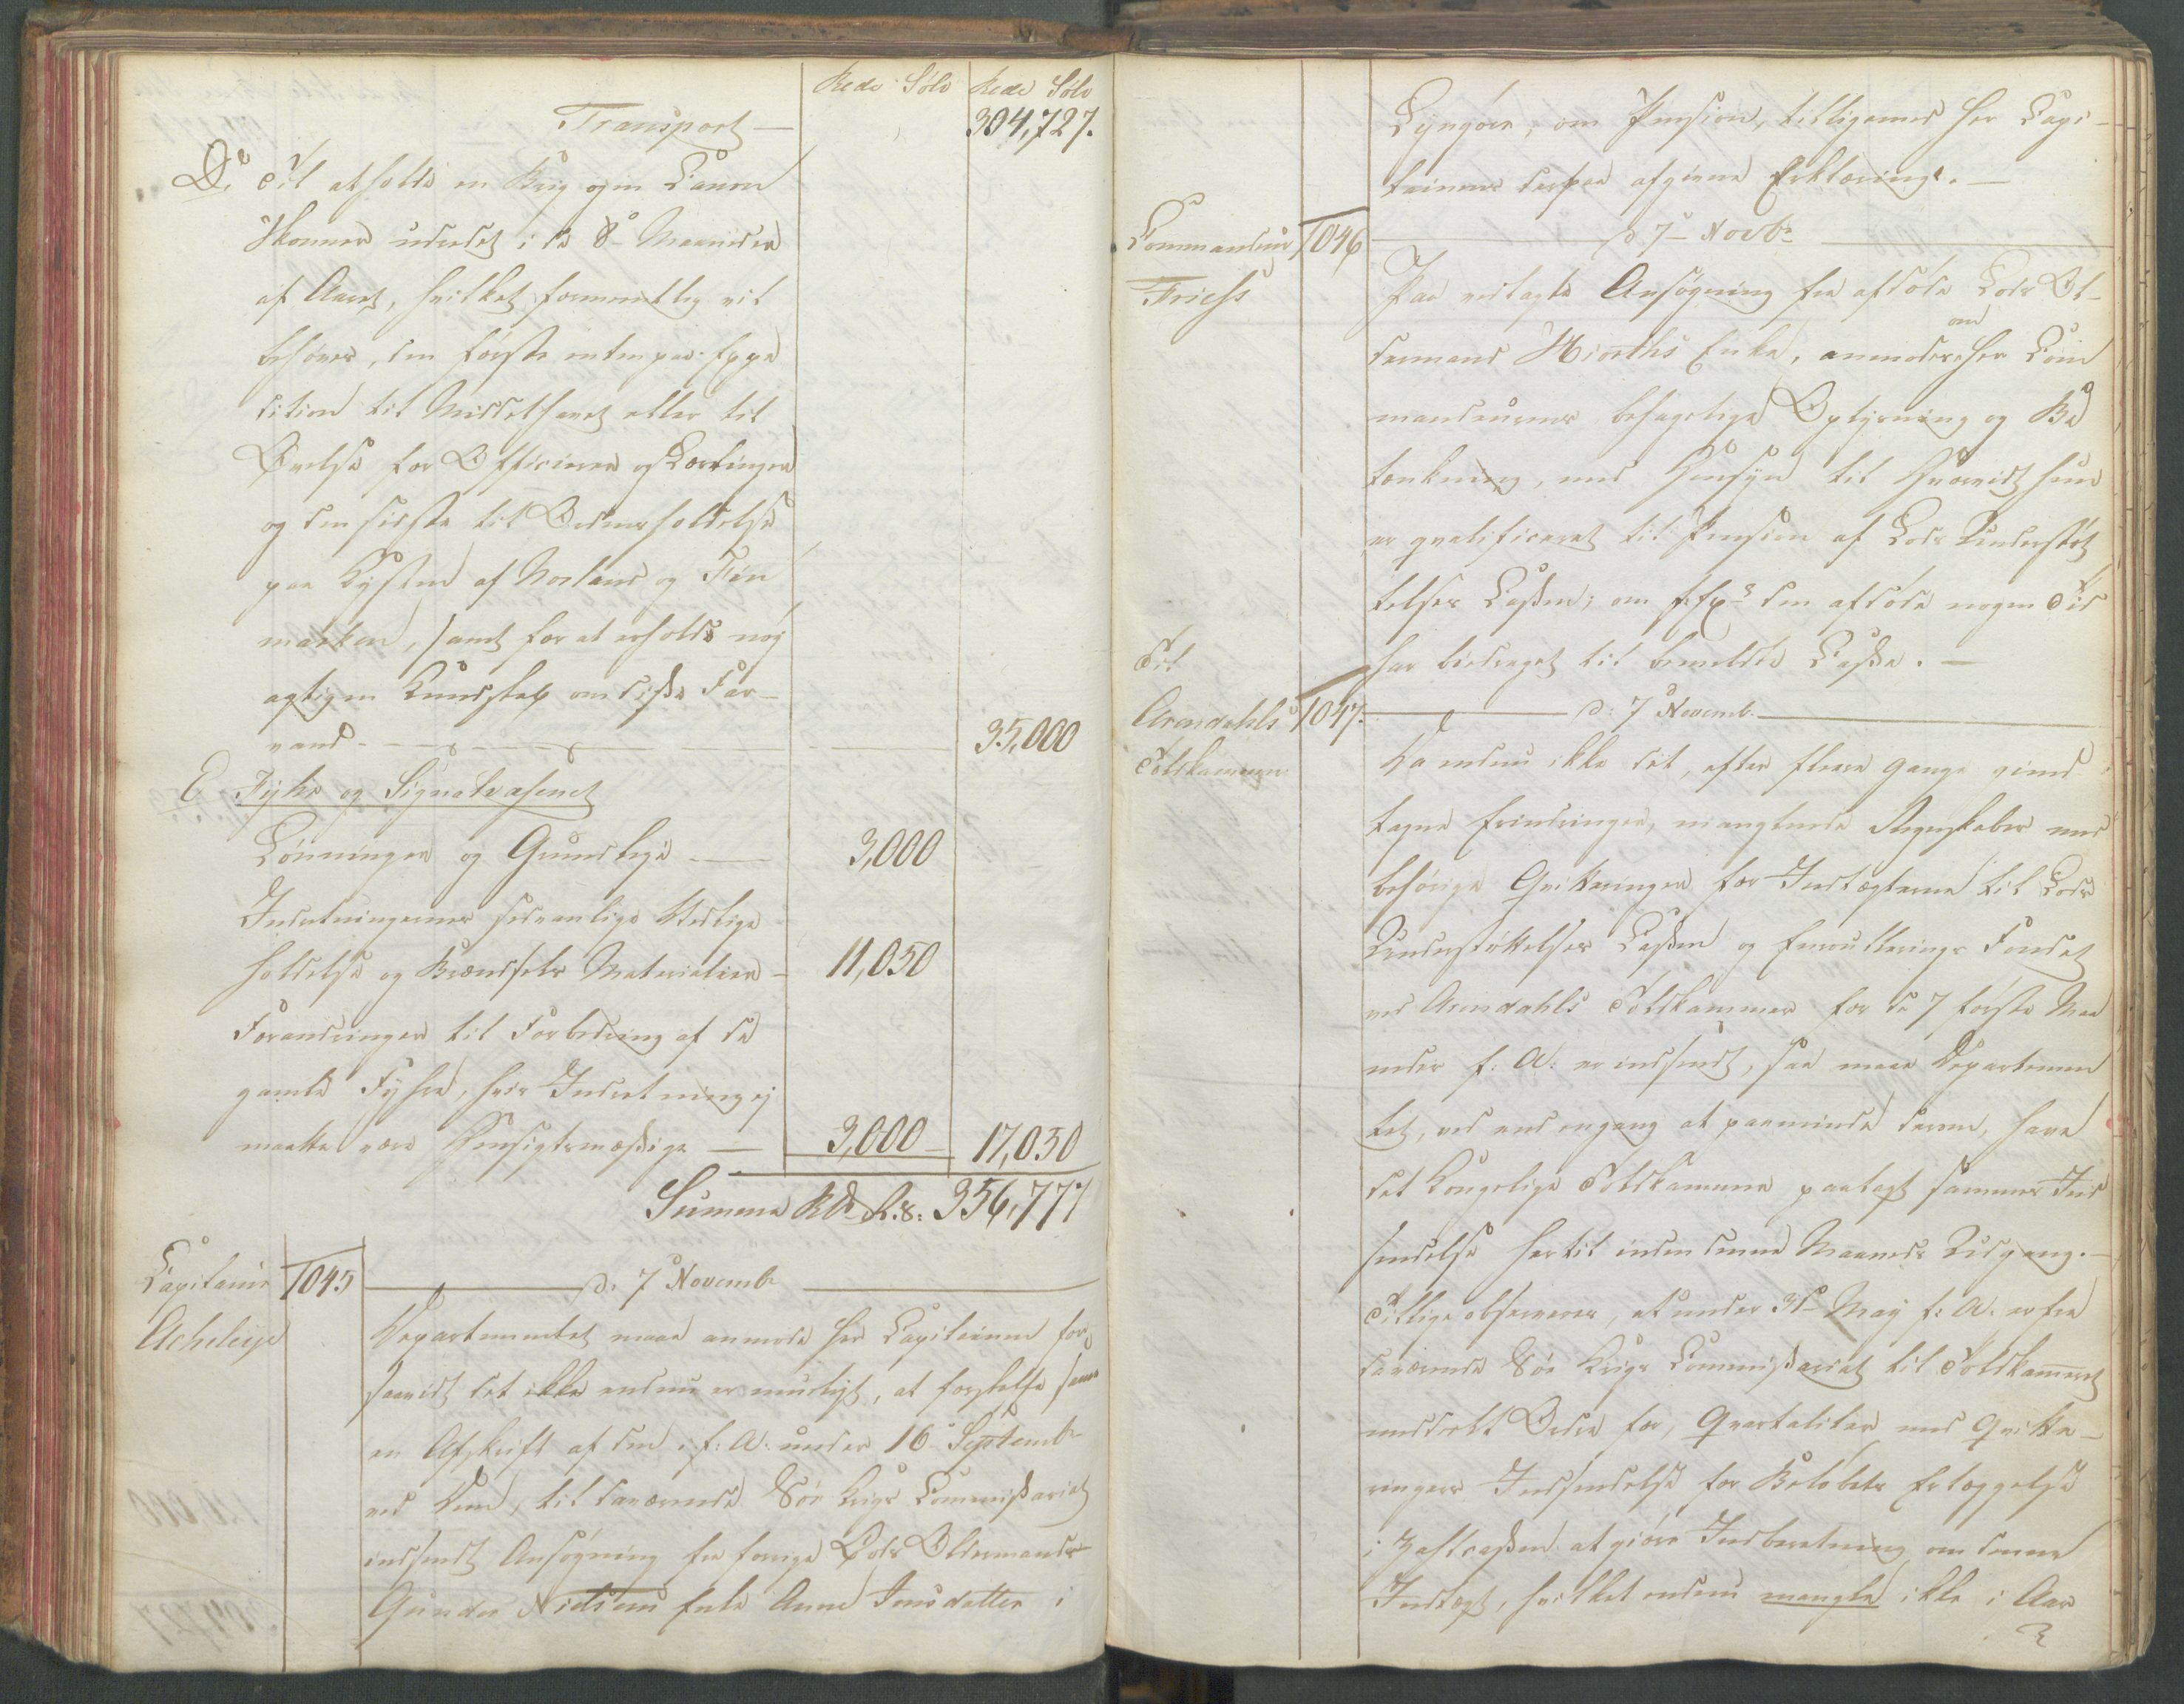 Rede Sølv Rede Sølv
Transport — 304,727.
D. Til at holde en Brig og en Canon
Skonner udrustet i de 8 Maaneder
af Aaret, hvilket formentlig vil
behøves, den første enten paa Expe
dition til Middelhavet eller til
Øvelse for Officierer og Lærlinger
og den sidste til Ordens holdelse
paa Kysten af Norland og Fin
marken, samt for at erholde nøj
agtigen Kundskab om disse Far-
vand — 35,000
E Fyhr og Signalvæsenet
Lønninger og Grundleje — 3,000
Indretningernes sædvanlige Vedlige
holdelse og Brændsels Materialier — 11,050
Forandringer til Forbedring af de
gamle Fyhre, hvis Indretning ej
maatte være Hensigtsmæssige — 3,000 — 17,050
Summa Rd. R. S: 356,777
Capitain
Acheleye
1045 d: 7 Novemb.
Departementet maa anmode Hr Capitainen for
saavidt det ikke endnu er mueligt, at forskaffe samme
en Afskrift af den i f: A: under 16 Septemb.
ved Dem, til daværende Søe Krigs Commissariat
indsendt Ansøgning fra forrige Lods Oldermands
Gunder Nielsens Enke Anne Jensdatter i
Lyngøer, om Pension, tilligemed Her Capi-
tainens derpaa afgivne Erklæring. —
Commandeur
Friess
1046 d 7 Novbr
Paa vedlagte Ansøgning fra afdøde Lods Ol-
dermand Hiorths Enke, anmodes om Her Com
mandeurens behagelige Oplysning og Be
tænkning, med Hensyn til hvorvidt hun
er qvalificeret til Pension af Lods Understøt
telses Cassen; om f: Ex: den afdøde nogen Tid
har bidraget til bemeldte Casse. —
Til
Arendahls
Toldkammer
1047. d: 7 Novemb.
Da endnu ikke det, efter flere gange giend
tagne Erindringer, manglende Regnskaber med
behørige Qvitteringer for Indtægterne til Lods
Understøttelses Cassen og Enroullerings Fondet
ved Arendahls Toldkammer for de 7 første Maa
neder f: A: er indsendt, saa maa Departemen
tet, ved end engang at paaminde derom, have
det Kongelige Toldkammer paalagt sammes Ind
sendelse hertil inden denne Maaneds Udgang.—
Tillige observeres, at under 31 May f: A. er fra
daværende Søe Krigs Commissariat til Toldkammeret
meddeelt Ordre for, Qvartaliter med Qvitte-
ringers Indsendelse for Beløbets Erlæggelse
i Zahlcassen at giøre Indberetning om denne
Indtægt, hvilket endnu mangler ikke i Aar